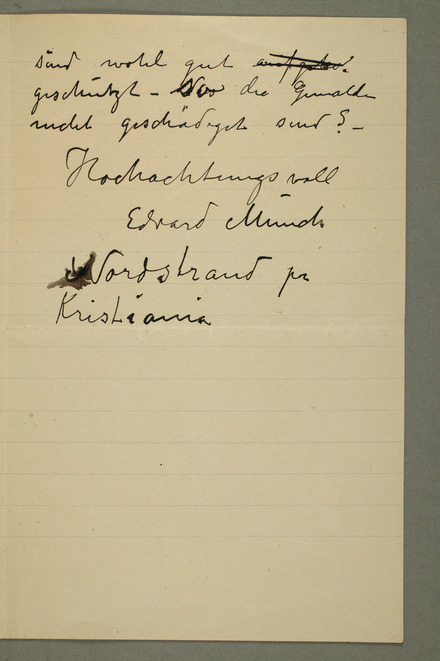 sind wohl gut
geschützt – die Gemälde
nicht geschädigt sind? –
Hochachtungsvoll
Edvard Munch
Nordstrand pr
Kristiania